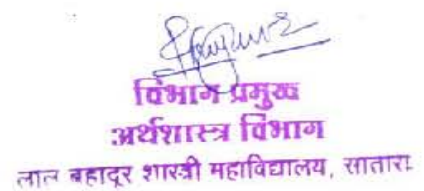 विभाग प्रमुख
अर्थशास्त्र विभाग
लाल बहादूर शास्त्री महाविद्यालय, सातारा.